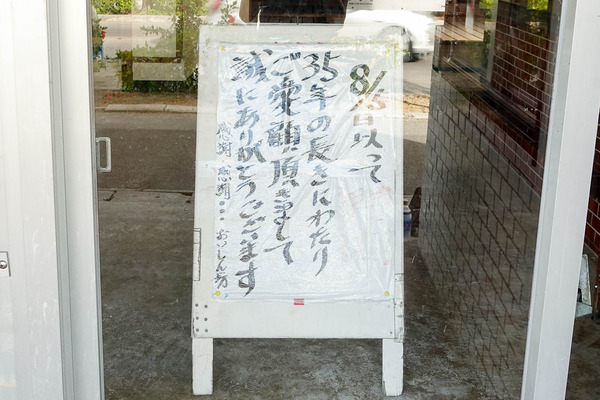 8/6日以って
35年の長きにわたり
ご愛顧頂きまして
誠にあり欤とうございます
感謝 感謝…おいしん坊